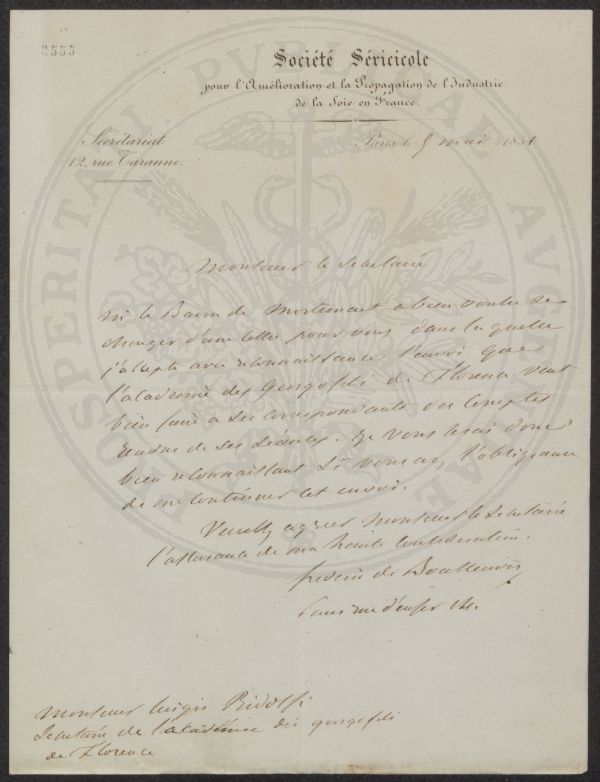 2555
Société Séricicole
pour l'Amélioration et la Propagation de l'Industrie
de la Soie en France.
Secrétariat
12, rue Taranne.
Paris le 5 mai 1851
PROSPERITATI PUBLICAE AUGENDAE
Monsieur le Secretaire
Mr le Baron de Mortemart a bien voulu se
charger d'une lettre pour vous dans la quelle
j'accepte avec reconnaissance l'envoi que
l'académie des Georgofili de Florence veut
bien faire a ses correspondants des comptes
rendus de ses séances. Je vous serais donc
bien reconnaissant si vous avez l'obligeance
de me continuer cet envoi.
Veuillez agréer Monsieur le Secretaire
l'assurance de ma haute consideration.
frederic de Boullenois
Paris rue d'enfer 14.
Monsieur Luigi Ridolfi
Secretaire de l'académie des georgofili
de Florence